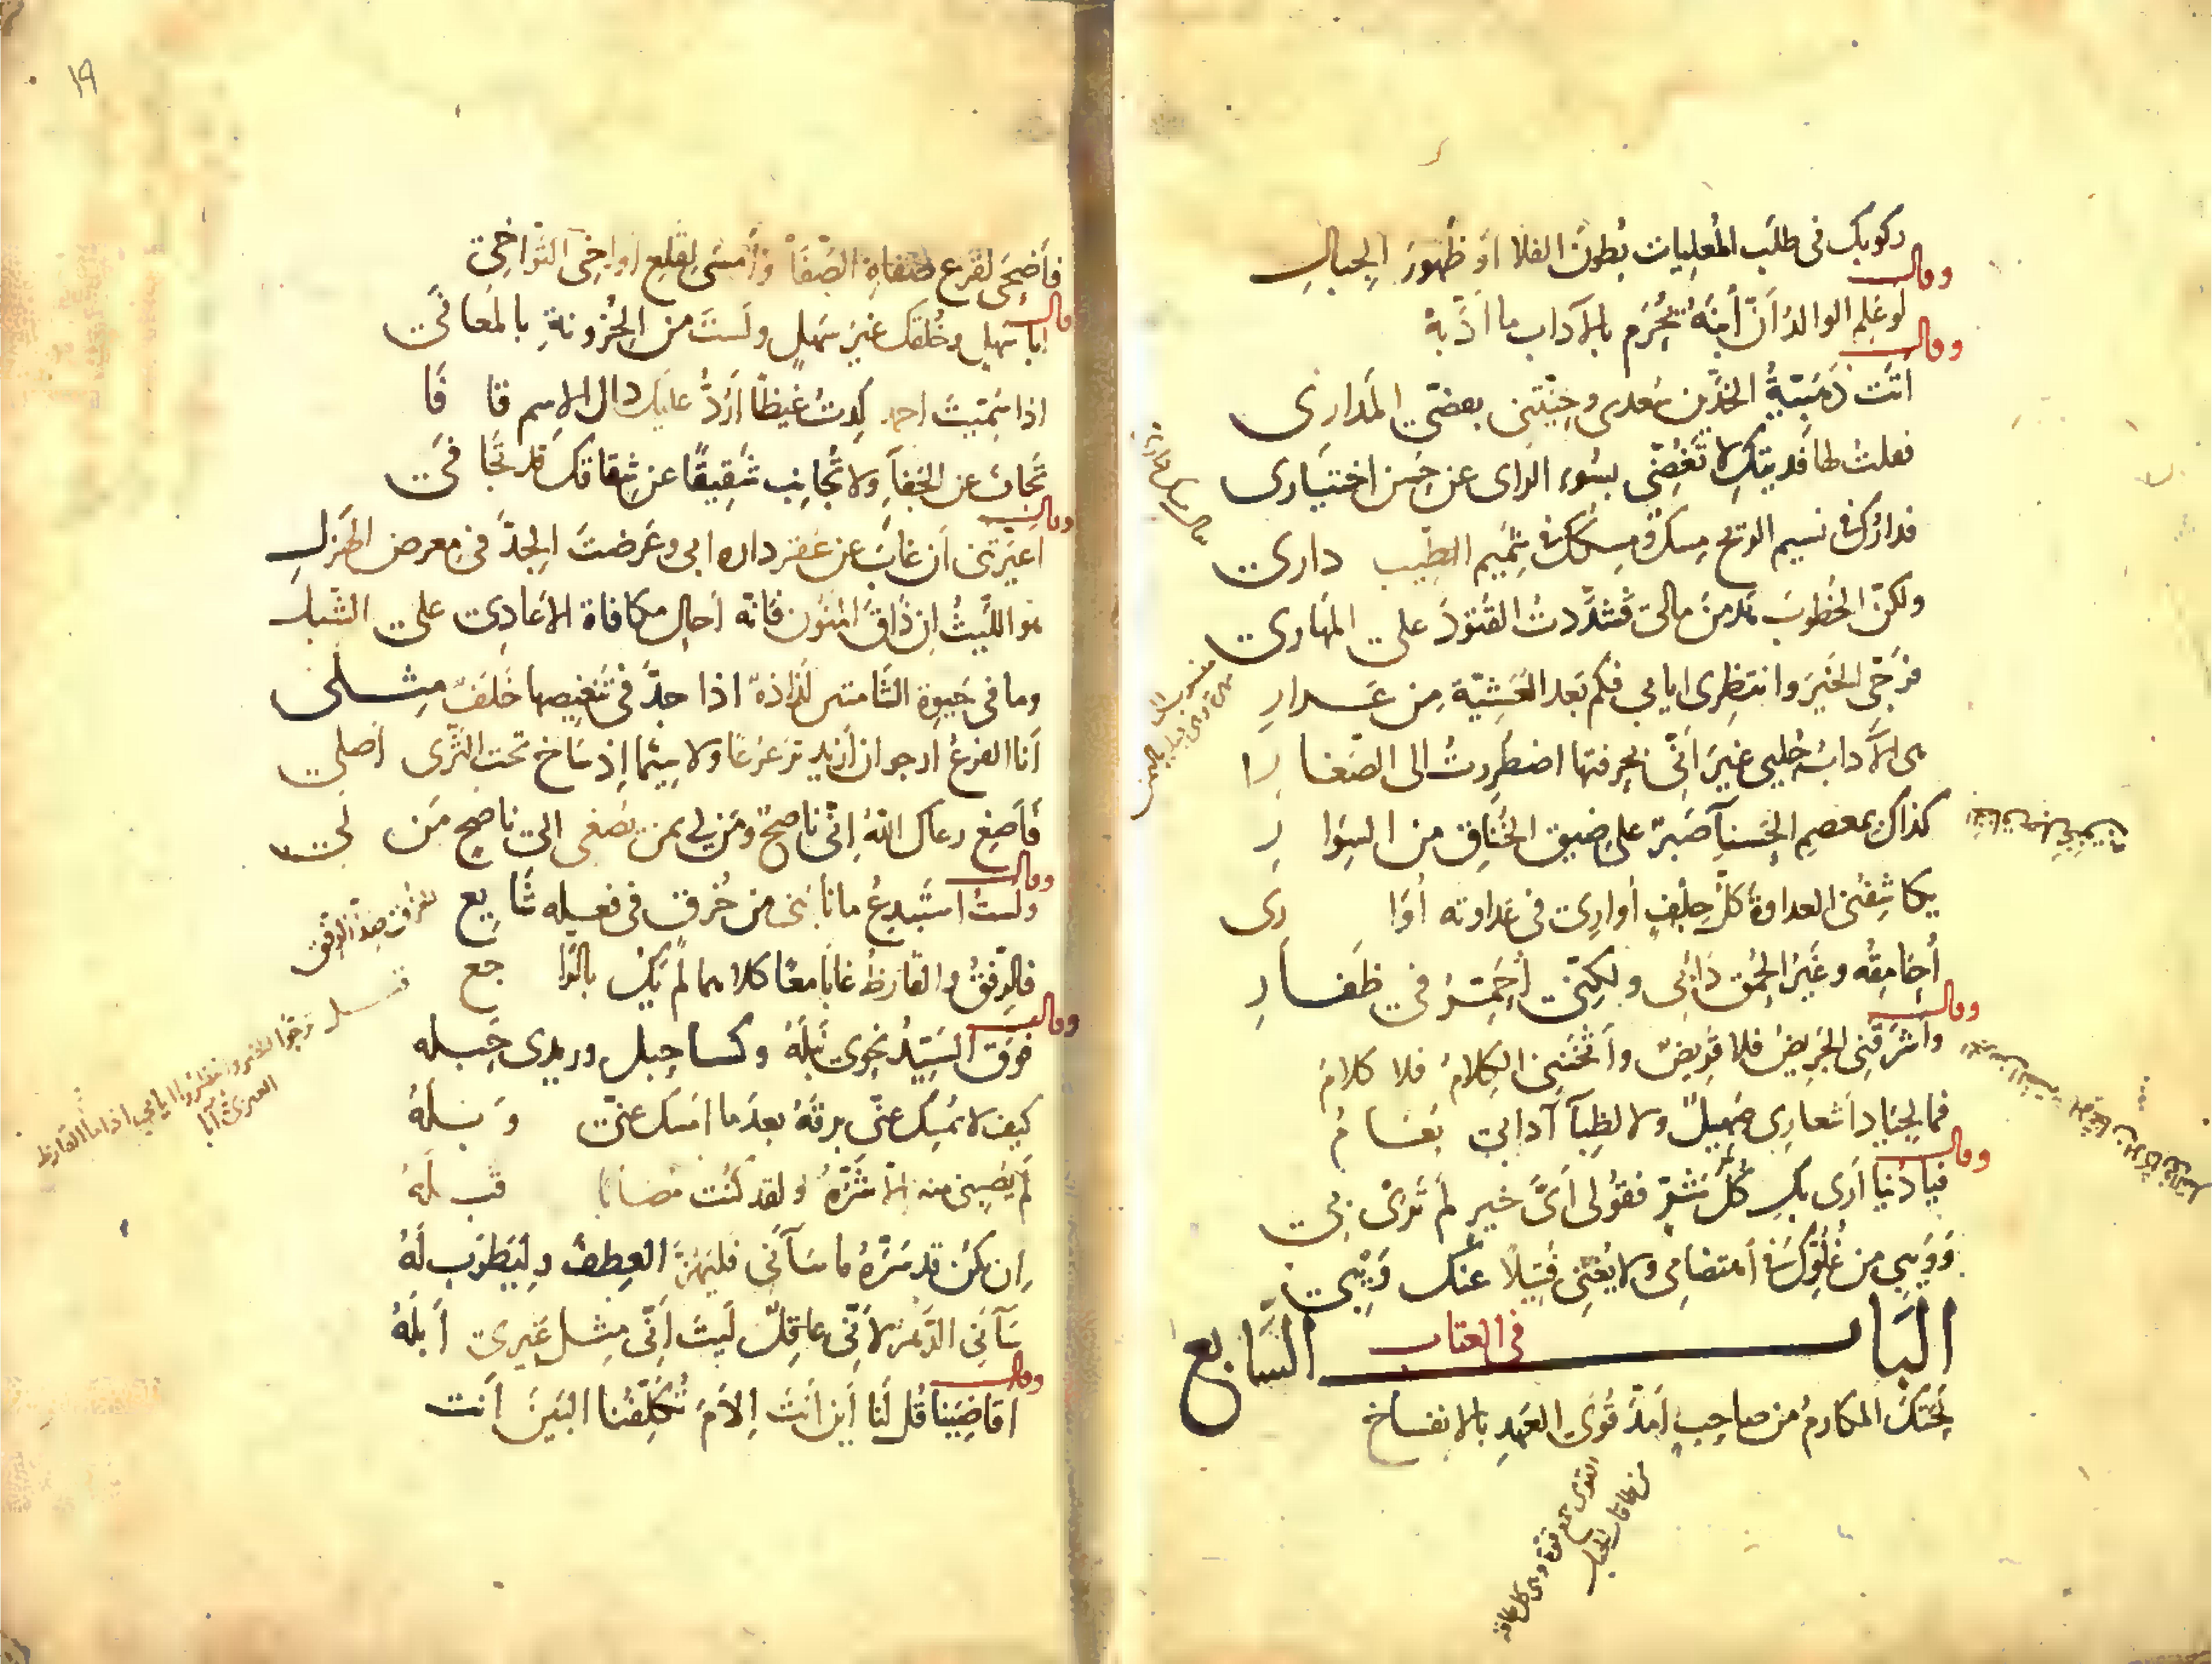 ركوبك فى طلب المعليات بطون الفلا او ظهور الجبال
وقال
لو علم الوالد أن ابنه يحرم بالآداب ما ادّبه
وقال
اتت ذهبيّة الخدّين سعدى وجنّتنى بعضّ المدارى
فقلت لها فديتك لا تغضّى بسوء الراى عن حسن اختيارى
فدارك نسيم الريح مسك ومسكك ثميم الطيب دارى
ولكنّ الخطوب هدمن مالى فشدّدت القتود على المهارى
فرجّى الخير وانتظرى ايابى فكم بعد العشيّة من عرار
هى الآداب حليى غير انّى بحرفتها اضطررت الى الصغار
كذاك بمعصم الحسناء صبر على ضيق الخناق من السوار
يكاشفنى العداوة كلّ جلف أوارى فى عداوته أوارى
أحامقه وغير الحمق دابى ولكنّى أحمّر فى ظفار
وقال
واشرقنى الجريض فلا قريض واثخننى الكلام فلا كلام
فما لجياد اشعارى صهيل ولا لظباء آدابى بغام
وقال
فيا دنيا ارى بك كلّ شرّ فقولى اىّ خير لم ترى بى
وويبى من امتضامى ولا يغنى فتيلا عنك ويبى
الباب السابع
فى العتاب
لحتك المكارم من صاحب امدّ قوى العهد بالانفساخ
القوى جمع قوة وهى كل طاقة
من طاقات الحبل
١٩
فأضحى لقرع صفاة الصفا وأمسى لقلع اواخى التواخى
وقال
ابا سهل وخلقك غير سهل ولست من الحزونة بالمعافى
اذا سمّيت احمد كدت غيظا اردّ عليك دال الاسم قافا
تجاف عن الجفاء ولا تجانب شقيقا عن شقاقك قد تجافى
وقال
اعيّرتنى ان غاب عن عقر داره ابى وعرضت الجدّ فى معرض الهزل
هو الليث ان ذاق المنون فانّه احال مكافاة الاعادى على الشبل
وما فى حيوة الشامتين لذاذة اذا جدّ فى تنغيصها خلف مثلى
أنا الفرع ارجو ان ازيد ترعرعا ولا سيّما اذ ساخ تحت الثرى اصلى
فأصغ رعاك الله انّى ناصح ومن لى بمن يصغى الى ناصح من لى
وقال
ولست استبدع ما نابنى من خرق فى فعله شايع
الخرق ضدّ الرفق
فالرفق والقارظ غابا معا كلاهما لم يك بالراجع
وقال
فوّق السيّد نحوى نبله وكسا حبل وريدى حبله
كيف لا تمسك عنّى برقه بعد ما امسك عنّى وبله
لم يصبنى منه الا شرّه ولقد كنت مصابا قبله
ان يكن قد سرّه ما ساءنى فليهزّ العطف وليطرب له
ساءنى الدهر لانّى عاقل ليت انّى مثل غيرى ابله
وقال
أقاضينا قل لنا أين انت إلام تكلّفنا البين أنت
فرجّى الخير وانتظرى ايابى اذا ما القارظ
العنزى آبا